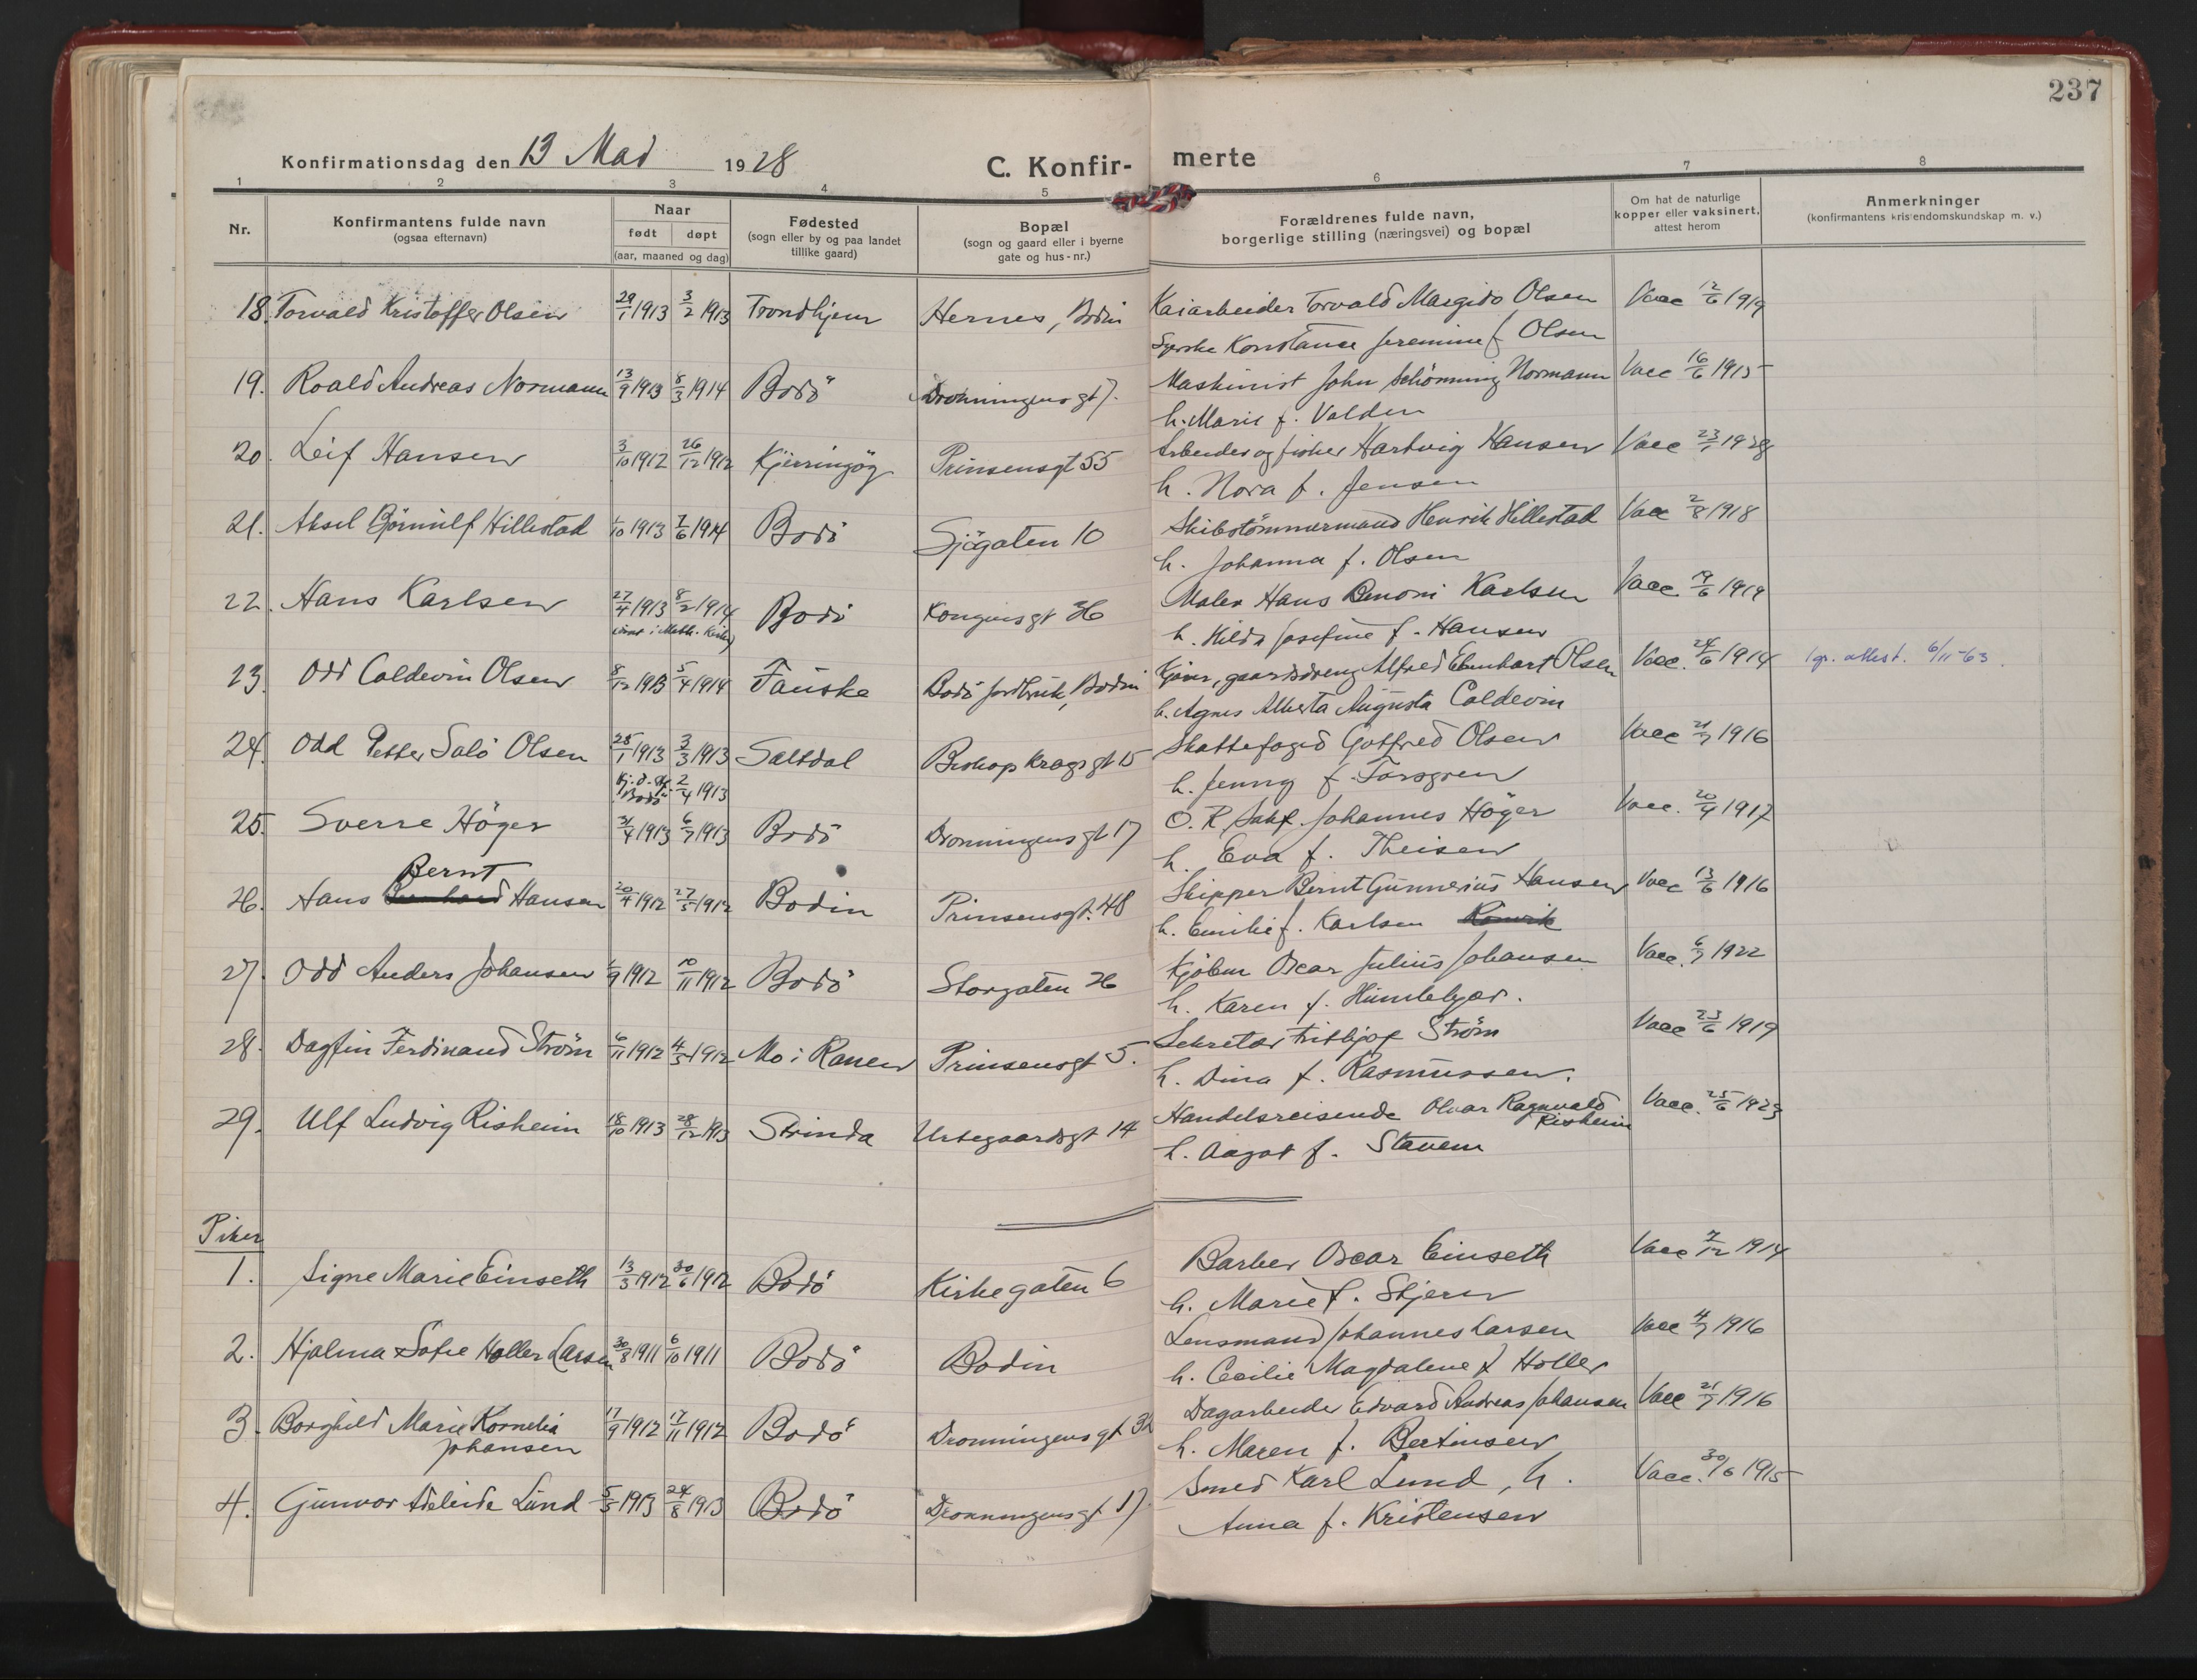 237
Konfirmationsdag den 13 Mai 1928
C. Konfir-merte
1 2 3 4 5 6 7 8
Nr.
Konfirmantens fulde navn
(ogsaa efternavn)
Naar
født døpt
(aar, maaned og dag)
Fødested
(sogn eller by og paa landet
tillike gaard)
Bopæl
(sogn og gaard eller i byerne
gate og hus-nr.)
Forældrenes fulde navn,
borgerlige stilling (næringsvei) og bopæl
Om hat de naturlige
kopper eller vaksinert,
attest herom
Anmerkninger
(konfirmantens kristendomskundskap m. v.)
18. Torvald Kristoffer Olsen 29/1 1913 3/2 1913 Trondhjem Hernes, Bodin Kaiarbeider Torvald Margido Olsen Vacc 12/6 1919
Konstanse Jeremine f. Olsen
19. Roald Andreas Normann 13/9 1913 8/3 1914 Bodö Dronningensgt 7. Maskinist John Schönning Normann Vacc 16/6 1915
h. Marie f. Valden
20. Leif Hansen 3/10 1912 26/12 1912 Kjerringöy Prinsensgt 55 Arbeider og fisker Hartvig Hansen Vacc 23/1 1928
h. Nora f. Jensen
21. Aksel Björnulf Hillestad 1/10 1913 7/6 1914 Bodö Sjögaten 10 Skibstömmermand Henrik Hillestad Vacc 2/8 1918
h. Johanna f. Olsen
22. Hans Karlsen 27/4 1913 8/2 1914 Bodö Kongensgt 36 Maler Hans Benoni Karlsen Vacc. 19/6 1919
i Meth. Kirke)
h. Hilda Josefine f. Hansen
23. Odd Coldevin Olsen 8/12 1913 5/4 1914 Fauske Bodö jordbruk, Bodin gaardsdreng Alfred Edenhart Olsen Vacc. 24/6 1914 1gr. attest. 6/11-63.
h. Agnes Alberta Augusta Coldevin
24. Odd Petter Salö Olsen 25/1 1913 3/3 1913 Saltdal Biskop Kragsgt 15 Skattefoged Gotfred Olsen Vacc 21/7 1916
Bodö 2/4 1913
h. Jenny f. Forsgren
25. Sverre Höger 31/4 1913 6/7 1913 Bodö Dronningensgt 17 O. R. Sakf. Johannes Höger Vacc. 20/4 1917
h. Eva f. Theisen
Bernt
26. Hans Hansen 20/4 1912 27/5 1912 Bodin Prinsensgt. 48 Skipper Bernt Gunnerius Hansen Vacc 13/6 1916
h. Emilie f. Karlsen
27. Odd Anders Johansen 1/9 1912 10/11 1912 Bodö Storgaten 26 Kjöbm Oscar Julius Johansen Vacc. 6/7 1922
h. Karen f. Hundebyr.
28. Dagfin Ferdinand Ström 6/11 1912 4/5 1912 Mo i Ranen Prinsensgt 5. Sekretær Fritbjof Ström Vacc 23/6 1919
h. Dina f. Rasmussen.
29. Ulf Ludvig Risheim 18/10 1913 28/12 1913 Strinda Urtegaardsgt 14 Handelsreisende Olvar Ragnvald Vacc. 25/6 1923
Risheim
h. Aagot f. Stavem
Piker
1. Signe Marie Einseth 13/3 1912 30/6 1912 Bodö Kirkegaten 6 Barber Oscar Einseth Vacc 7/12 1914
h. Marie f. Skjerv
2. Hjalma Sofie Holler Larsen 30/8 1911 6/10 1911 Bodö Bodin Lensmand Johannes Larsen Vacc 4/7 1916
h. Cecilie Magdalene f Holler
3. Borghild Marie Kornelia 17/9 1912 17/11 1912 Bodö Dronningensgt 32 Dagarbeider Edvard Andreas Johansen Vacc 21/7 1916
Johansen
h. Maren f. Bertinsen
4. Gunvor Adeleide Lund 5/5 1913 24/8 1913 Bodö Dronningensgt 17 Smed Karl Lund, h. Vacc. 30/6 1915
Anna f. Kristensen